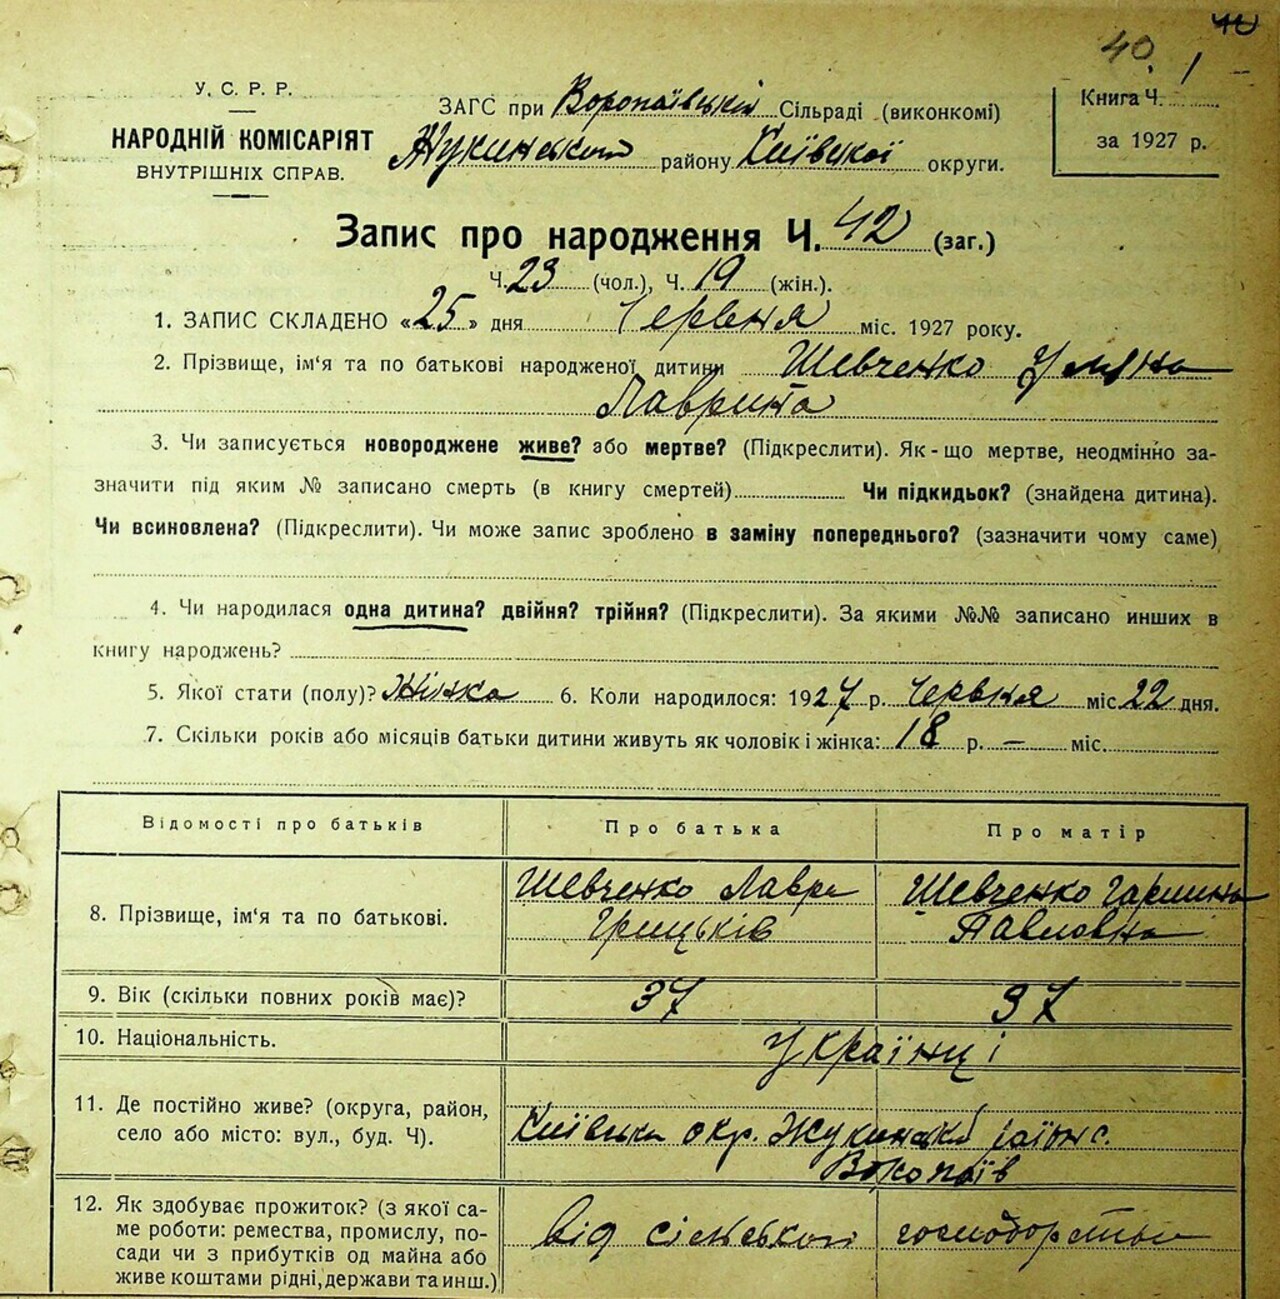 40
40
1
У. С. Р. Р.
НАРОДНІЙ КОМІСАРІЯТ
ВНУТРІШНІХ СПРАВ.
ЗАГС при Воропаївській Сільраді (виконкомі)
Жукинського району Київської округи.
Книга Ч.
за 1927 р.
Запис про народження Ч. 42 (заг.)
Ч. 23 (чол.), Ч. 19 (жін.).
1. ЗАПИС СКЛАДЕНО «25» дня Червня міс. 1927 року.
2. Прізвище, ім'я та по батькові народженої дитини Шевченко Уляна
Лаврина
3. Чи записується новороджене живе? або мертве? (Підкреслити). Як-що мертве, неодмінно за-
значити під яким № записано смерть (в книгу смертей) Чи підкидьок? (знайдена дитина).
Чи всиновлена? (Підкреслити). Чи може запис зроблено в заміну попереднього? (зазначити чому саме)
4. Чи народилася одна дитина? двійня? трійня? (Підкреслити). За якими №№ записано инших в
книгу народжень?
5. Якої стати (полу)? Жінка 6. Коли народилося: 1927 р. Червня міс. 22 дня.
7. Скільки років або місяців батьки дитини живуть як чоловік і жінка: 18 р. — міс.
Відомості про батьків Про батька Про матір
8. Прізвище, ім'я та по батькові.
Шевченко Лавре
Грицьків
Шевченко Гарпина
Павловна
9. Вік (скільки повних років має)? 37 37
10. Національність. Українці
11. Де постійно живе? (округа, район,
село або місто: вул., буд. Ч).
Київська окр. Жукинський район с.
Воропаїв
12. Як здобуває прожиток? (з якої са-
ме роботи: ремества, промислу, по-
сади чи з прибутків од майна або
живе коштами рідні, держави та инш.)
від сільського господарства